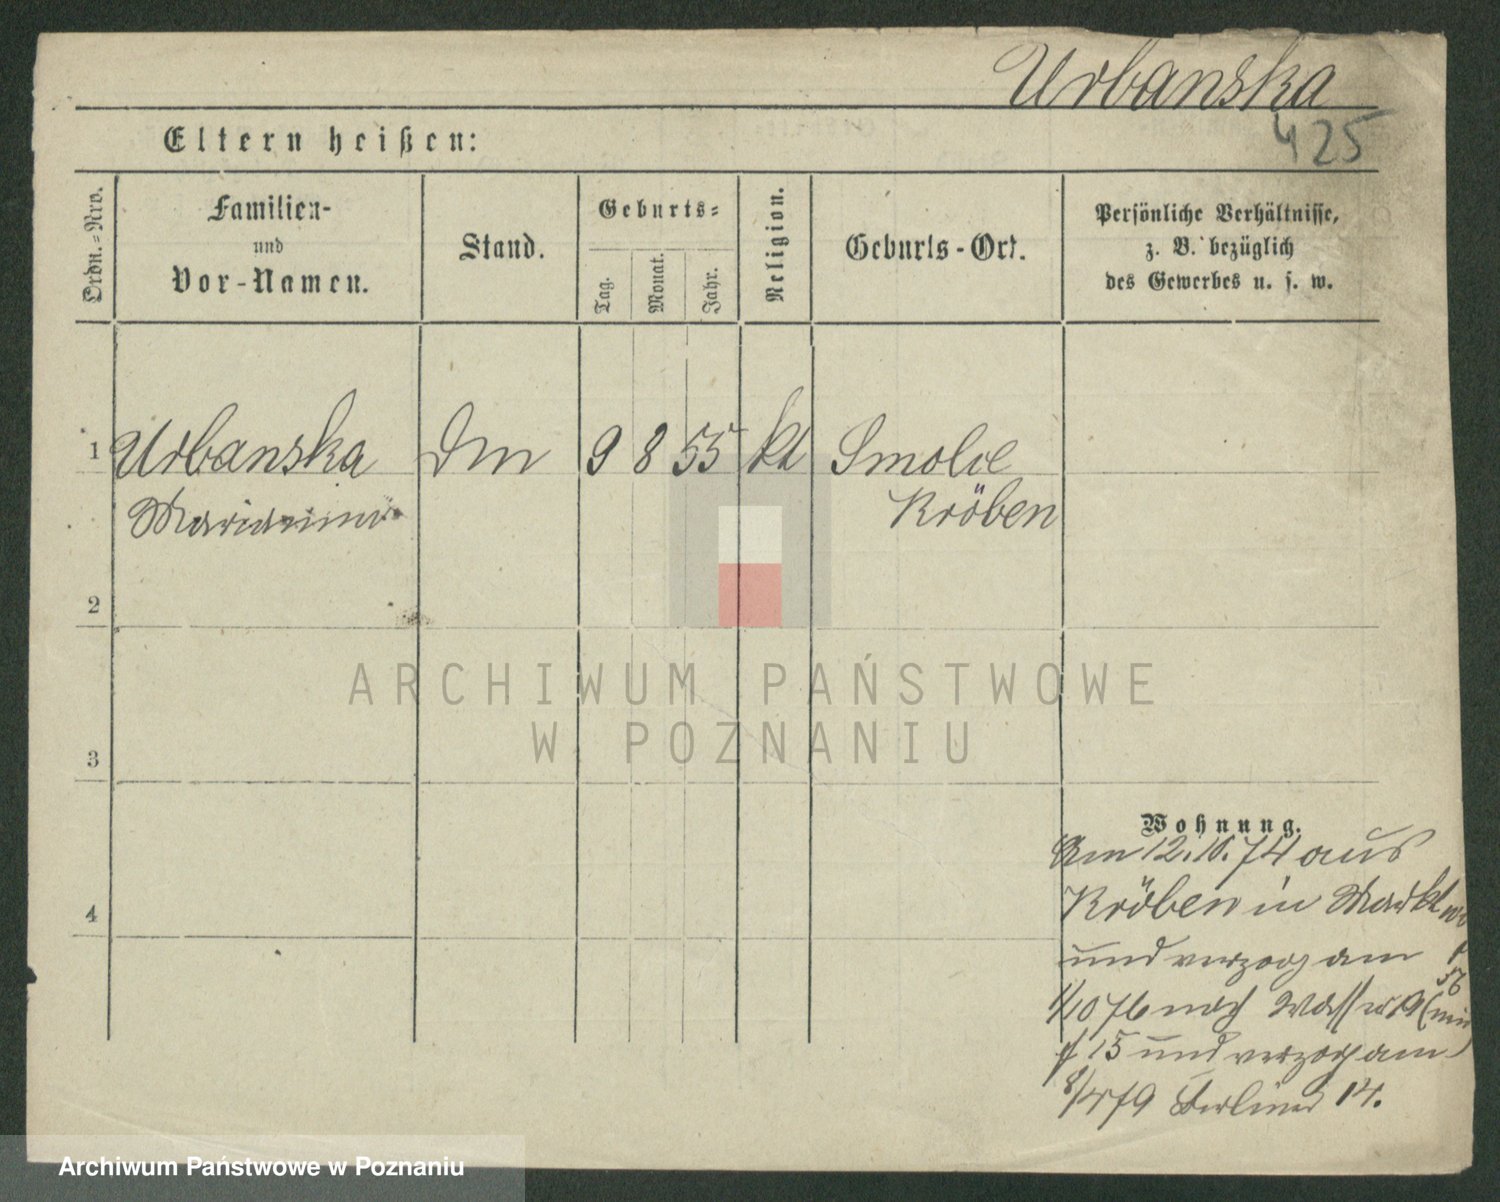 Urbanska
425
Eltern heißen:
Ordn.-Nro.
Familien-
und
Vor-Namen.
Stand.
Geburts-
Tag.
Monat.
Jahr.
Religion.
Geburts-Ort.
Persönliche Verhältnisse,
z. B. bezüglich
des Gewerbes u. s. w.
1 Urbanska 9 8 55 kt Smolic
Marianna Kröben
2
3
4
ARCHIWUM PAŃSTWOWE
W POZNANIU
Wohnung.
Am 12.10.74 aus
Kröben in Markt
und verzog am
56
1/10 76 nach Wasser 19
15 und verzog am
8/4 79 Berliner 14.
Archiwum Państwowe w Poznaniu